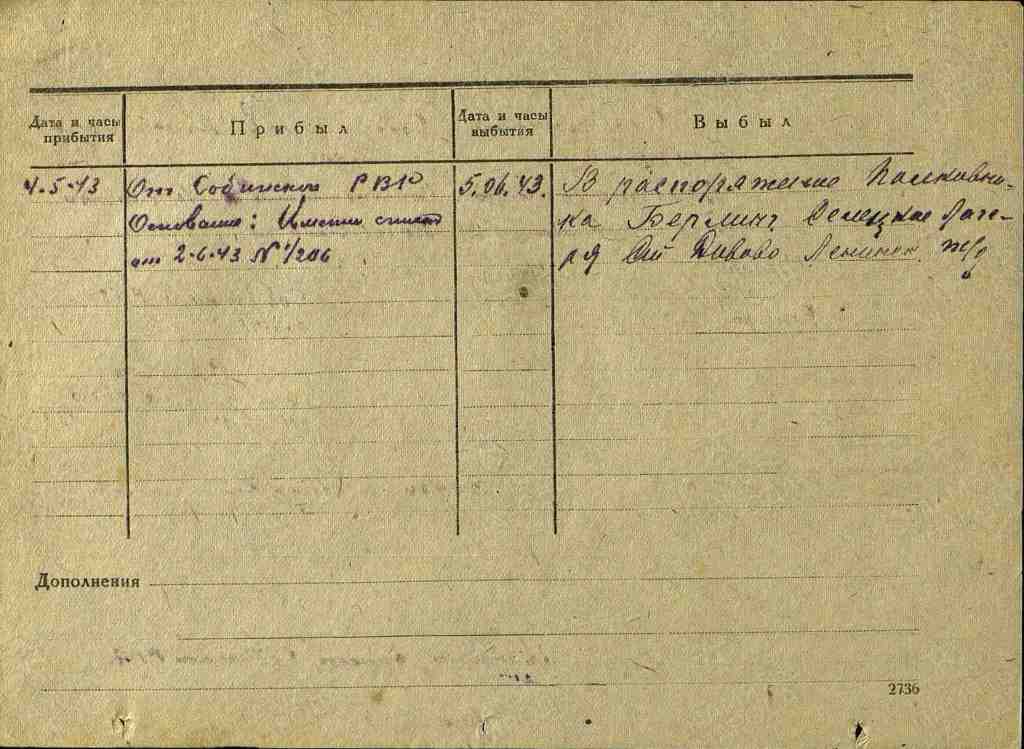 Дата и часы прибытия
Прибыл
Дата и часы выбытия
Выбыл
4.5.43
От Собинского РВК
Основание: Именной список
от 2.6.43 № 1/206
5.06.43.
В распоряжение Полковни-
ка Берлинг Селецкие Лаге-
ря ст Дивово Ленинск. ж/д
Дополнения
2736